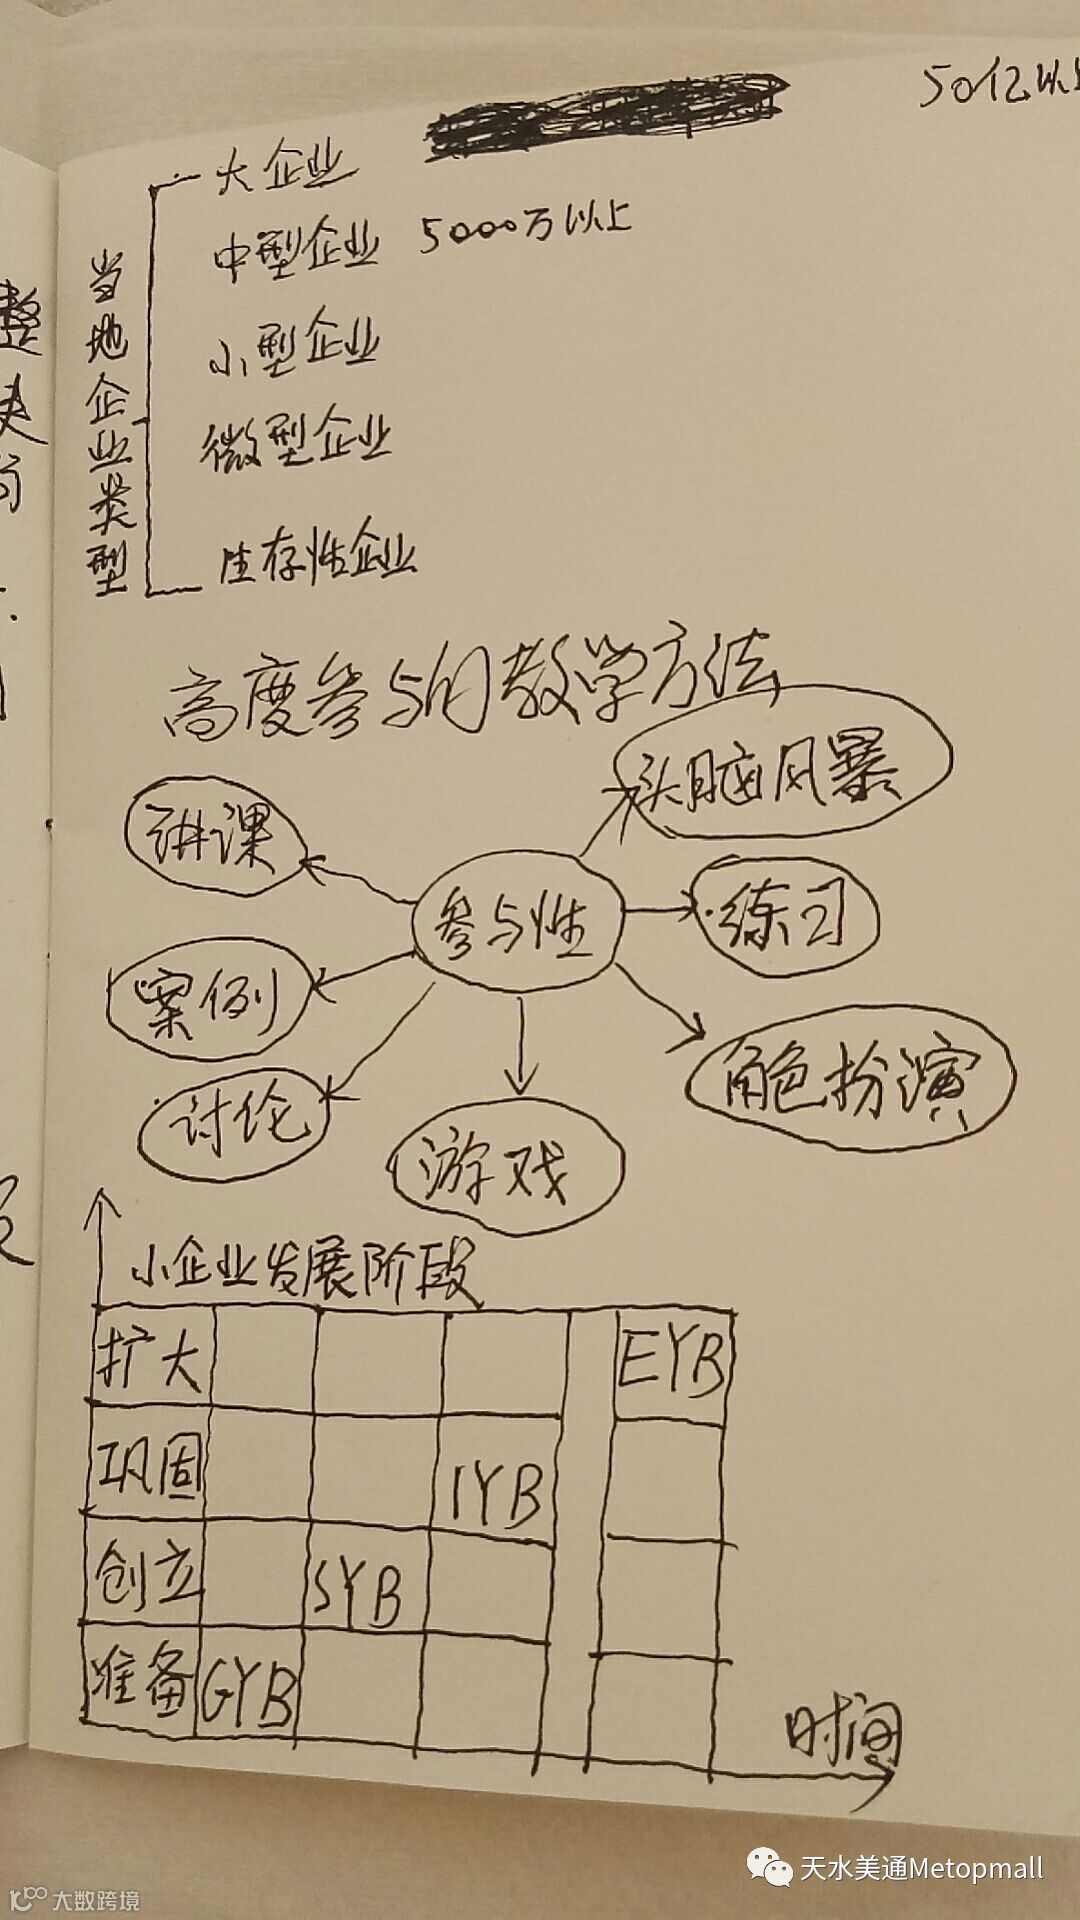 50亿以上
大企业
中型企业 5000万以上
小型企业
微型企业
生存性企业
当地企业类型
高度参与的教学方法
头脑风暴
讲课
参与性
练习
案例
角色扮演
讨论
游戏
小企业发展阶段
扩大 EYB
巩固 IYB
创立 SYB
准备 GYB
时间
天水美通Metopmall
大数跨境